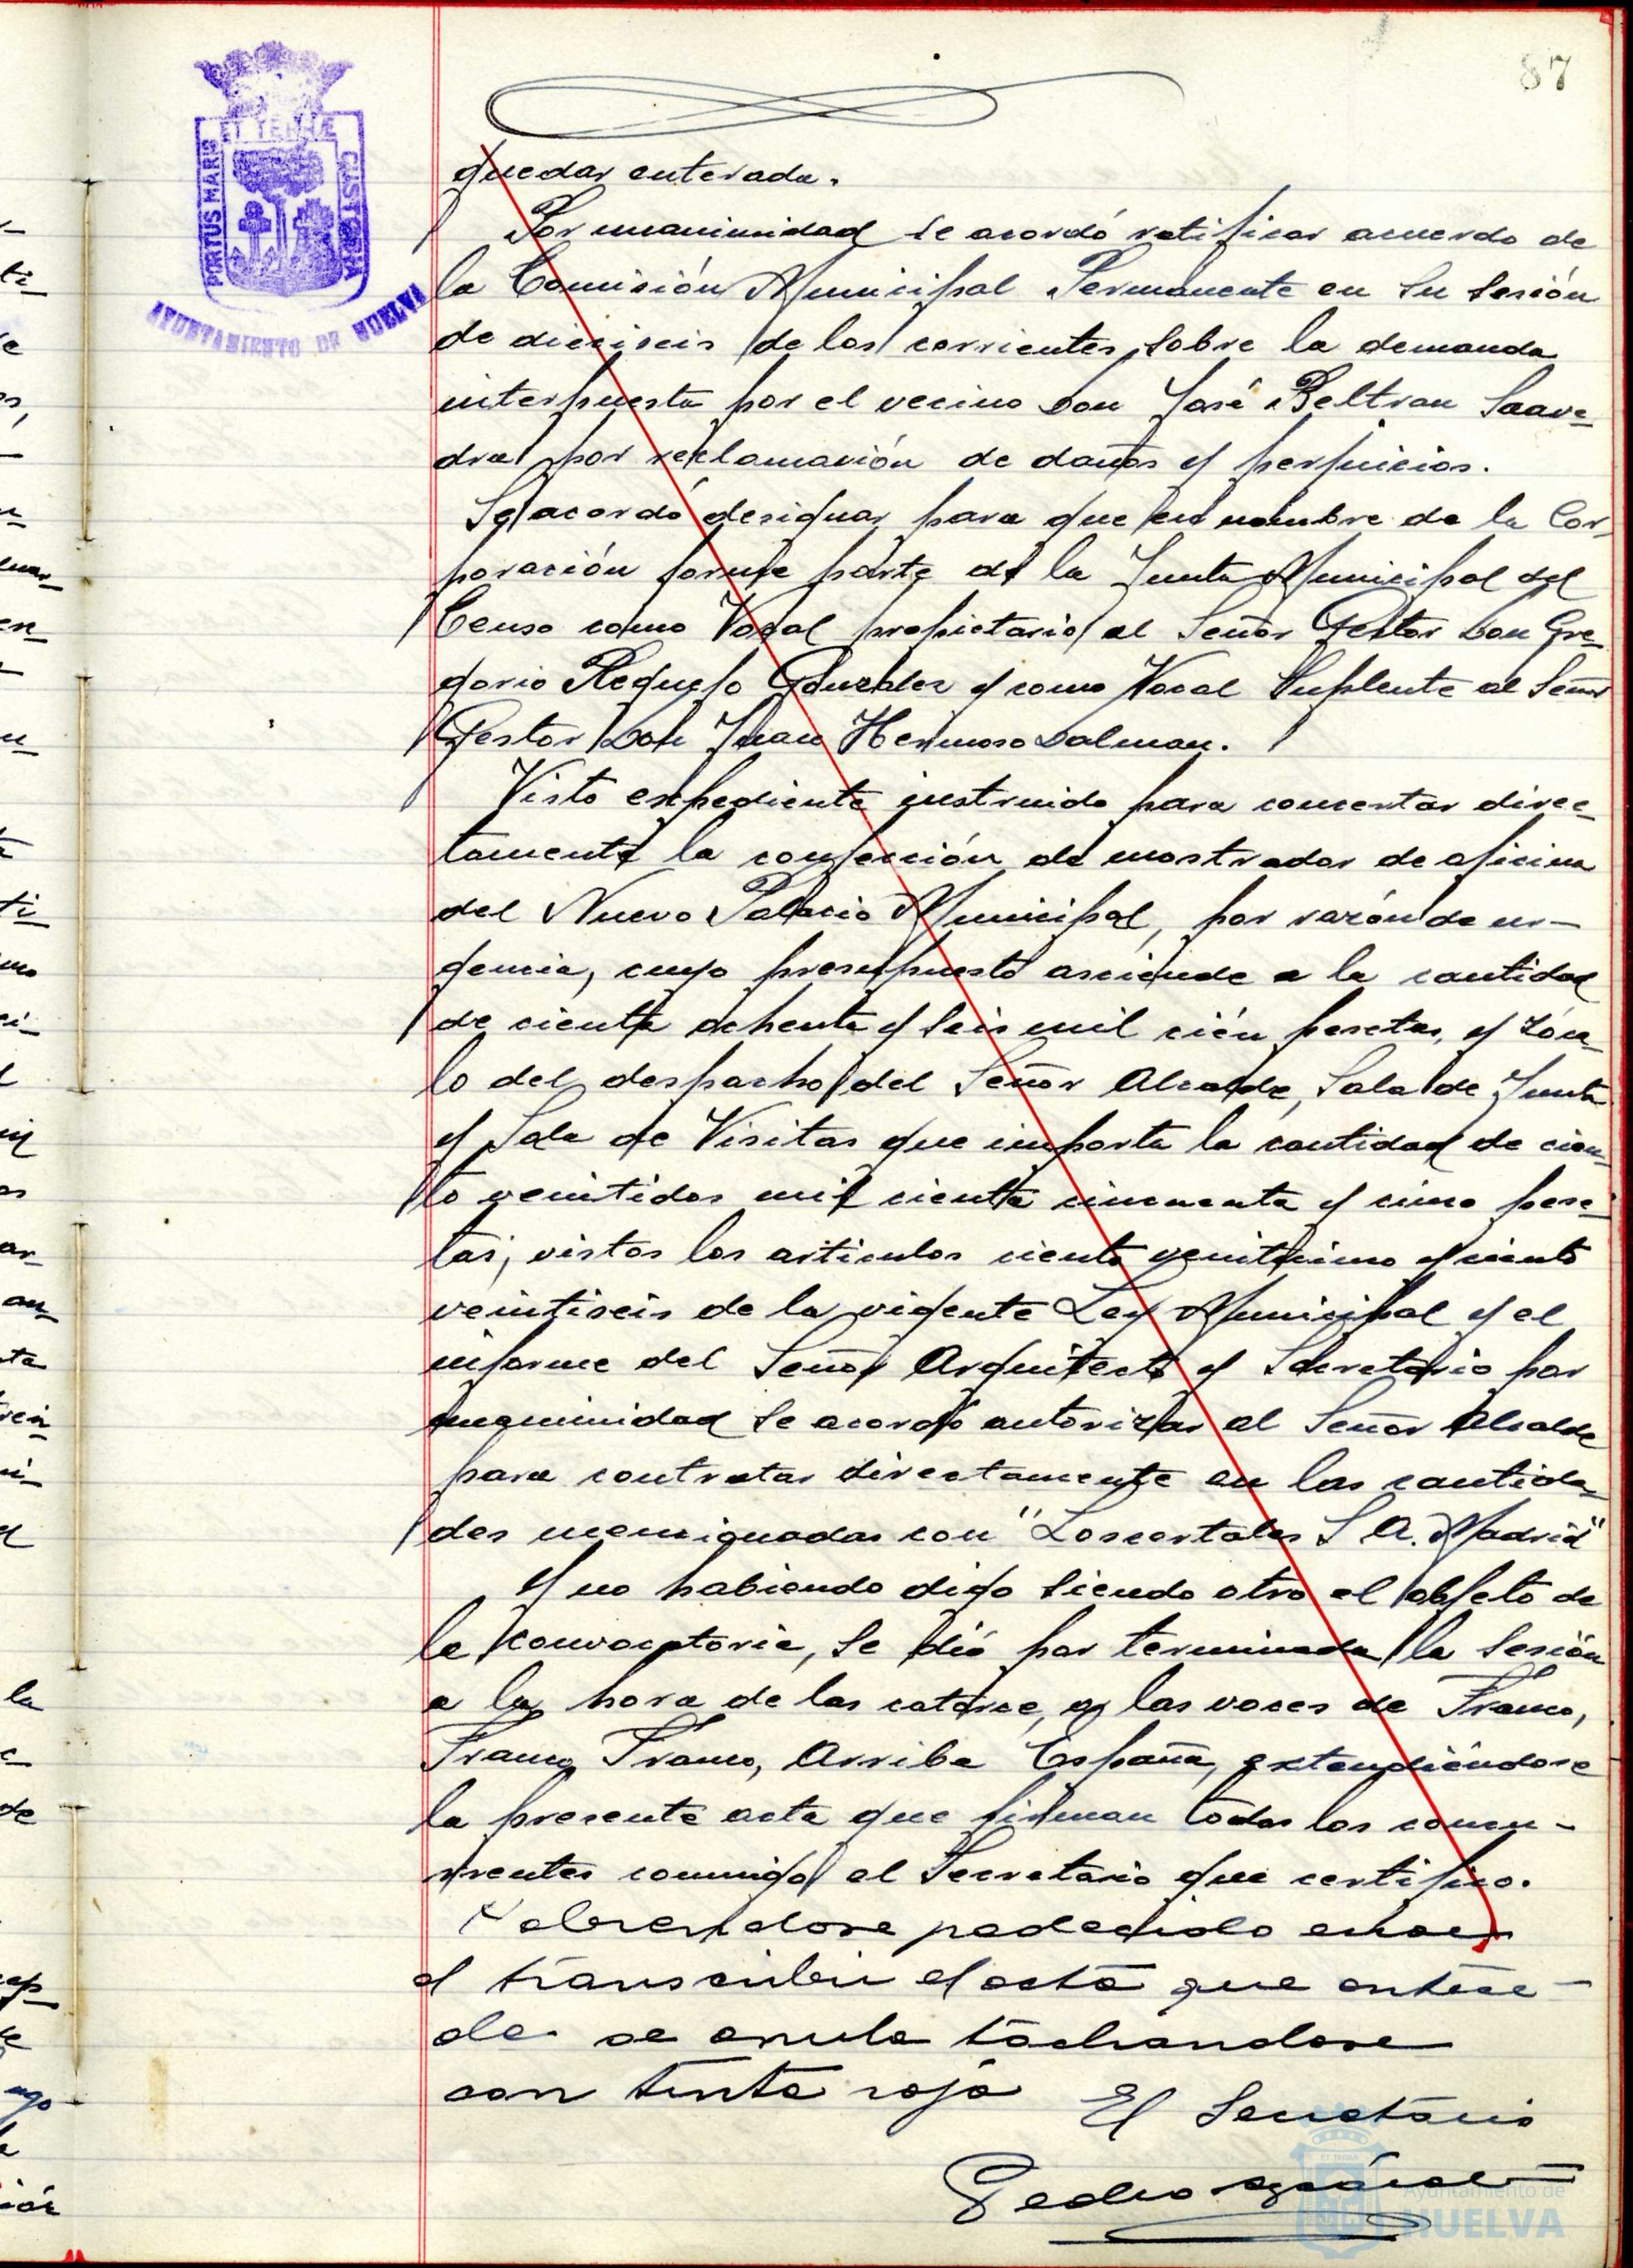 87
PORTUS MARIS ET TERRAE CUSTODIA
AYUNTAMIENTO DE HUELVA
quedar enterada.
Por unanimidad se acordó ratificar acuerdo de
la Comisión Municipal Permanente en su sesión
de dieciseis de los corrientes, sobre la demanda
interpuesta por el vecino Don José Beltran Saave-
dra por reclamación de daños y perjuicios.
Se acordó designar para que en nombre de la Cor-
poración forme parte de la Junta Municipal del
Censo como Vocal propietario al Señor Gestor Don Gre-
gorio Requejo Gonzalez y como Vocal Suplente al Señor
Gestor Don Juan Hermoso Dalman.
Visto expediente instruido para concertar direc-
tamente la confección de mostrador de oficina
del Nuevo Palacio Municipal, por razón de ur-
gencia, cuyo presupuesto asciende a la cantidad
de ciento ochenta y seis mil cién pesetas, y
lo del despacho del Señor Alcalde, Sala de Junta
y Sala de Visitas que importa la cantidad de cien-
to venitidos mil ciento cincuenta y cinco pese-
tas, vistos los articulos ciento y ciento
veintiseis de la vigente Ley Municipal y el
informe del Señor Arquitecto y Secretario por
unanimidad se acordo autorizar al Señor Alcalde
para contratar directamente en las cantida-
des mencionadas con "Loscertales S A. Madrid"
Y no habiendo digo siendo otro el objeto de
la convocatoria, se dió por terminada la sesión
a la hora de las catorce, a las voces de Franco,
Franco, Franco, Arriba España, extendiéndose
la presente acta que firman todos los concu-
rrentes conmigo el Secretario que certifico.
Habiendose padecido error
al transcribir el acta que antece-
de se anula tachandose
con tinta roja El Secretario
Pedro
Ayuntamiento de
HUELVA